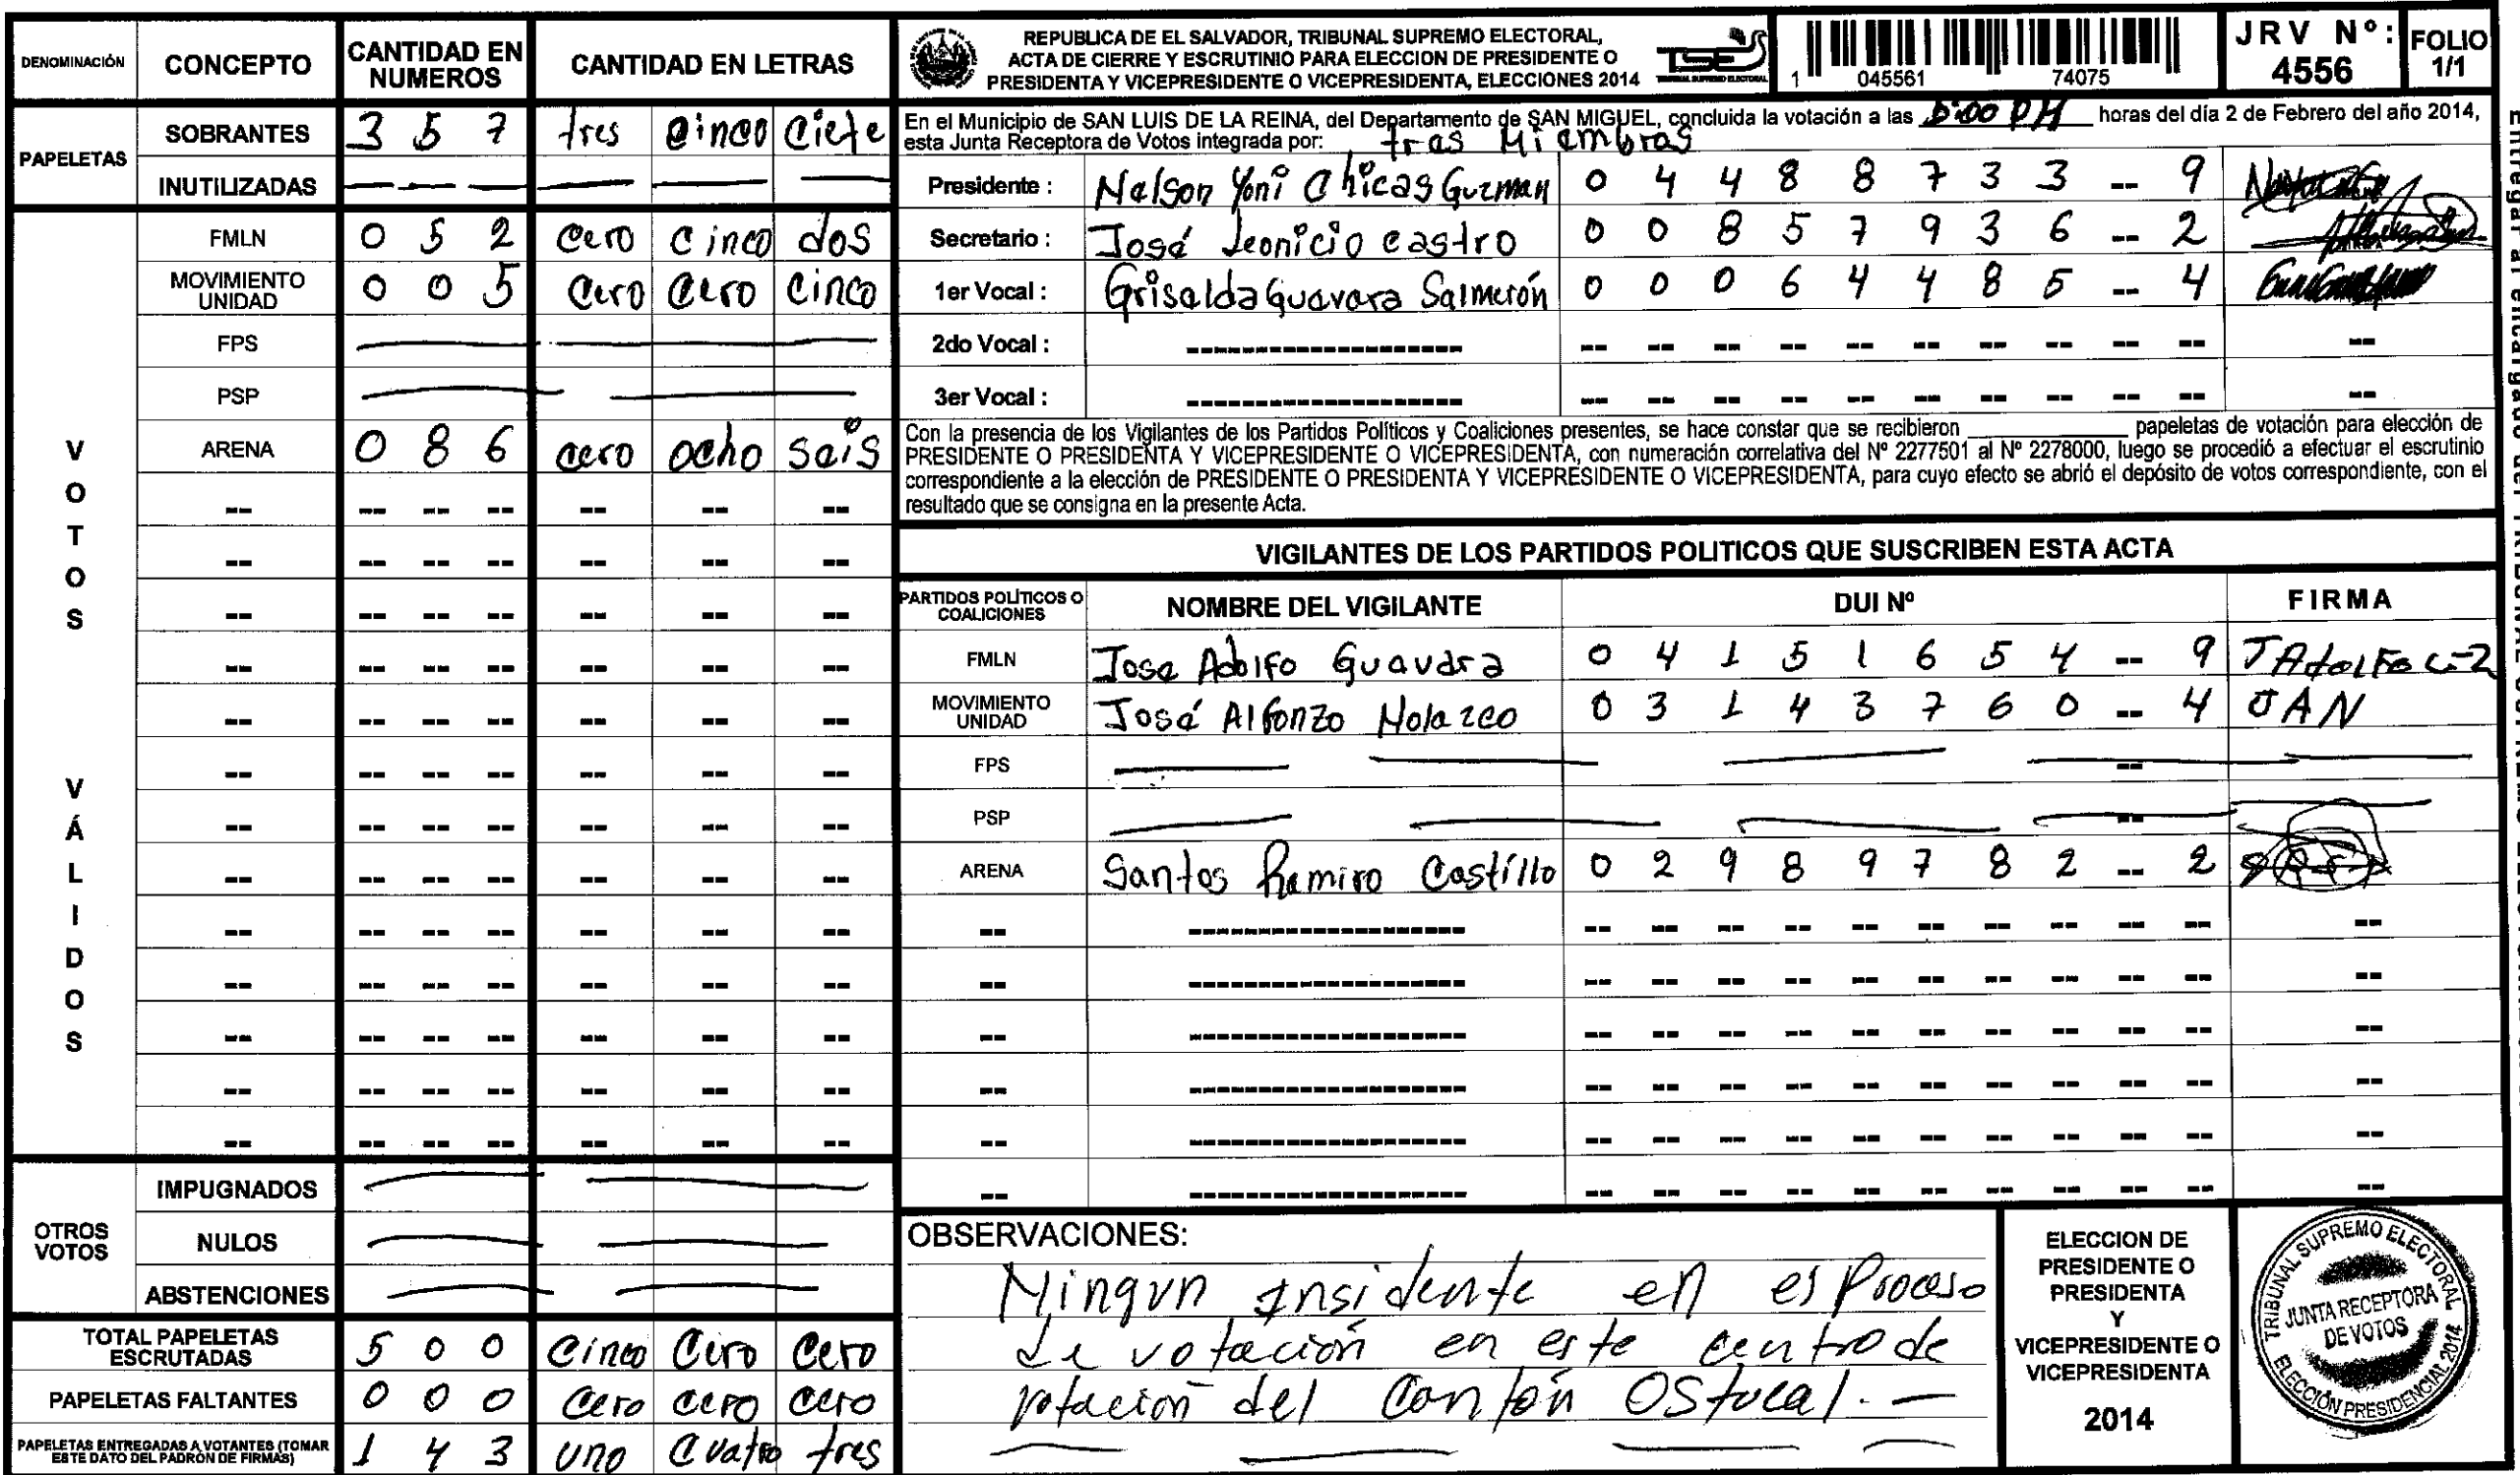 DENOMINACIÓN CONCEPTO CANTIDAD EN NUMEROS CANTIDAD EN LETRAS
PAPELETAS
SOBRANTES 3 5 7 tres cinco ciete
INUTILIZADAS
VOTOS VÁLIDOS
FMLN 0 5 2 cero cinco dos
MOVIMIENTO UNIDAD 0 0 5 cero cero cinco
FPS
PSP
ARENA 0 8 6 cero ocho seis
OTROS VOTOS
IMPUGNADOS
NULOS
ABSTENCIONES
TOTAL PAPELETAS ESCRUTADAS 5 0 0 cinco cero cero
PAPELETAS FALTANTES 0 0 0 cero cero cero
PAPELETAS ENTREGADAS A VOTANTES (TOMAR ESTE DATO DEL PADRÓN DE FIRMAS) 1 4 3 uno cuatro tres
REPUBLICA DE EL SALVADOR, TRIBUNAL SUPREMO ELECTORAL,
ACTA DE CIERRE Y ESCRUTINIO PARA ELECCION DE PRESIDENTE O
PRESIDENTA Y VICEPRESIDENTE O VICEPRESIDENTA, ELECCIONES 2014
TSE
TRIBUNAL SUPREMO ELECTORAL
1 045561 74075
JRV Nº: 4556
FOLIO 1/1
En el Municipio de SAN LUIS DE LA REINA, del Departamento de SAN MIGUEL, concluida la votación a las 5:00 PM horas del día 2 de Febrero del año 2014,
esta Junta Receptora de Votos integrada por: tres Miembros
Presidente : Nelson Yoni Chicas Guzman 0 4 4 8 8 7 3 3 -- 9
Secretario : José Leonicio castro 0 0 8 5 7 9 3 6 -- 2
1er Vocal : Griselda Guevara Salmerón 0 0 0 6 4 4 8 5 -- 4
2do Vocal :
3er Vocal :
Con la presencia de los Vigilantes de los Partidos Políticos y Coaliciones presentes, se hace constar que se recibieron ____ papeletas de votación para elección de
PRESIDENTE O PRESIDENTA Y VICEPRESIDENTE O VICEPRESIDENTA, con numeración correlativa del Nº 2277501 al Nº 2278000, luego se procedió a efectuar el escrutinio
correspondiente a la elección de PRESIDENTE O PRESIDENTA Y VICEPRESIDENTE O VICEPRESIDENTA, para cuyo efecto se abrió el depósito de votos correspondiente, con el
resultado que se consigna en la presente Acta.
VIGILANTES DE LOS PARTIDOS POLITICOS QUE SUSCRIBEN ESTA ACTA
PARTIDOS POLÍTICOS O COALICIONES NOMBRE DEL VIGILANTE DUI Nº FIRMA
FMLN Jose Adolfo Guevara 0 4 1 5 1 6 5 4 -- 9
MOVIMIENTO UNIDAD José Alfonzo Nolazco 0 3 1 4 3 7 6 0 -- 4 JAN
FPS
PSP
ARENA Santos Ramiro Castillo 0 2 9 8 9 7 8 2 -- 2
OBSERVACIONES:
Ningun Insidente en el Proceso
de votación en este centro de
votación del Cantón Ostucal.
ELECCION DE
PRESIDENTE O
PRESIDENTA
Y
VICEPRESIDENTE O
VICEPRESIDENTA
2014
TRIBUNAL SUPREMO ELECTORAL
JUNTA RECEPTORA
DE VOTOS
ELECCIÓN PRESIDENCIAL 2014